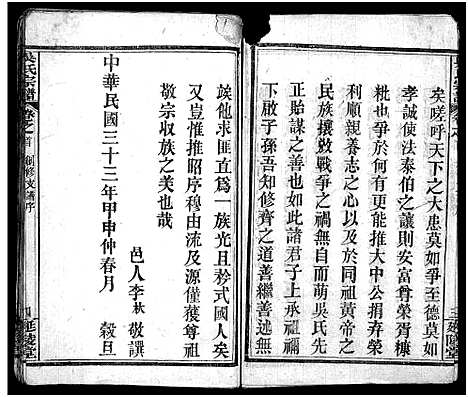 矣嗟呼天下之大患莫如爭至德莫如
李誠使法泰伯之讓則安富尊榮胥糠
粃也奈爭於何有更能推大中公共存榮
利順親養志之心以及於同祖黃帝之
民族攘敓戰爭之禍無自而萌吳氏先
正貽謀之善也如此諸君子上承祖宗
下啟子孫吾知修齊之道善繼善述無
竢他求匪直為一族光且矜式國人矣
又豈惟推昭序穆由流及源僅獲尊祖
敬宗收族之美也哉
邑人李秋敬譔
中華民國三十三年甲申仲春月 穀旦
吳氏宗譜
卷之首 創修支譜序
四 延陵堂